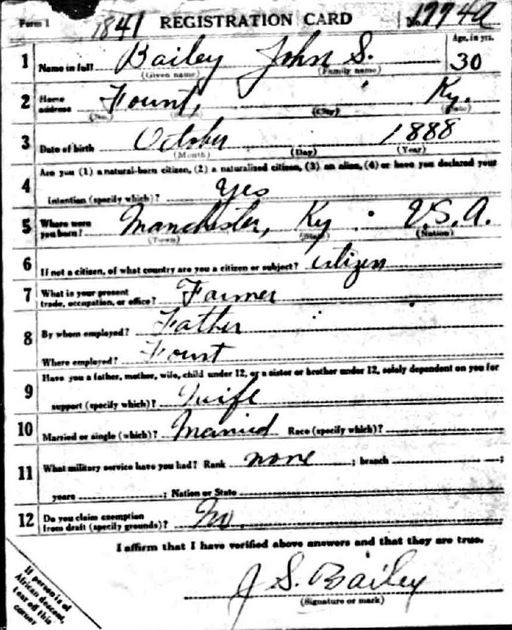 Form 1 1841 REGISTRATION CARD No. 1774 A
Age, in yrs.
1 Name in full Bailey John S. 30
(Given name) (Family name)
2 Home address Fount, Ky.
(No.) (City) (State)
3 Date of birth October 1888
(Month) (Day) (Year)
Are you (1) a natural-born citizen, (2) a naturalized citizen, (3) an alien, (4) or have you declared your
4 intention (specify which)? Yes
5 Where were you born? Manchester, Ky. U.S.A.
(Town) (State) (Nation)
6 If not a citizen, of what country are you a citizen or subject? citizen
7 What is your present trade, occupation, or office? Farmer
8 By whom employed? Father
Where employed? Fount
Have you a father, mother, wife, child under 12, or a sister or brother under 12, solely dependent on you for
9 support (specify which)? Wife
10 Married or single (which)? Married Race (specify which)?
11 What military service have you had? Rank none ; branch ;
years ; Nation or State
12 Do you claim exemption from draft (specify grounds)? No.
I affirm that I have verified above answers and that they are true.
J S. Bailey
(Signature or mark)
If person is of
African descent,
tear off this
corner